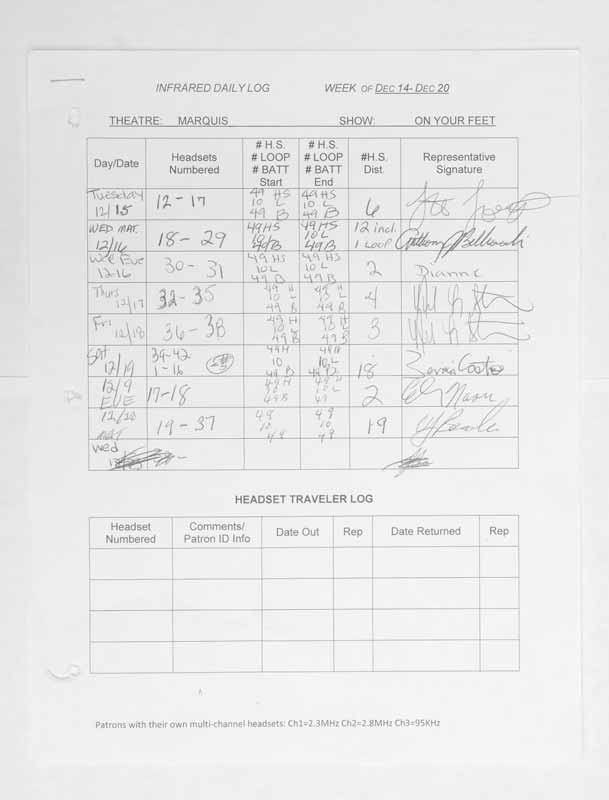 INFRARED DAILY LOG WEEK OF DEC 14- DEC 20
THEATRE: MARQUIS SHOW: ON YOUR FEET
Day/Date Headsets Numbered # H.S. # LOOP # BATT Start # H.S. # LOOP # BATT End #H.S. Dist. Representative Signature
Tuesday 12/15 12-17 49 HS 10 L 49 B 49 HS 10 L 49 B 6
WED. MAT. 12/16 18-29 49HS 10L 49B 49HS 10L 49B 12 incl. 1 Loop Anthony
Wed Eve 12-16 30-31 49HS 10L 49B 49HS 10L 49B 2 Dianne
Thurs 12/17 32-35 49 H 10 L 49 B 49 H 10 L 49 B 4
Fri 12/18 36-38 49 H 10 L 49 B 49 H 10 L 49 B 3
Sat 12/19 39-42 1-16 49H 10 49 B 49H 10L 18
12/9 EVE 17-18 49H 10L 49B 49 10 49 2
12/20 MAT 19-37 49 10 49 49 10 49 19
Wed
HEADSET TRAVELER LOG
Headset Numbered Comments/ Patron ID Info Date Out Rep Date Returned Rep
Patrons with their own multi-channel headsets: Ch1=2.3MHz Ch2=2.8MHz Ch3=95KHz